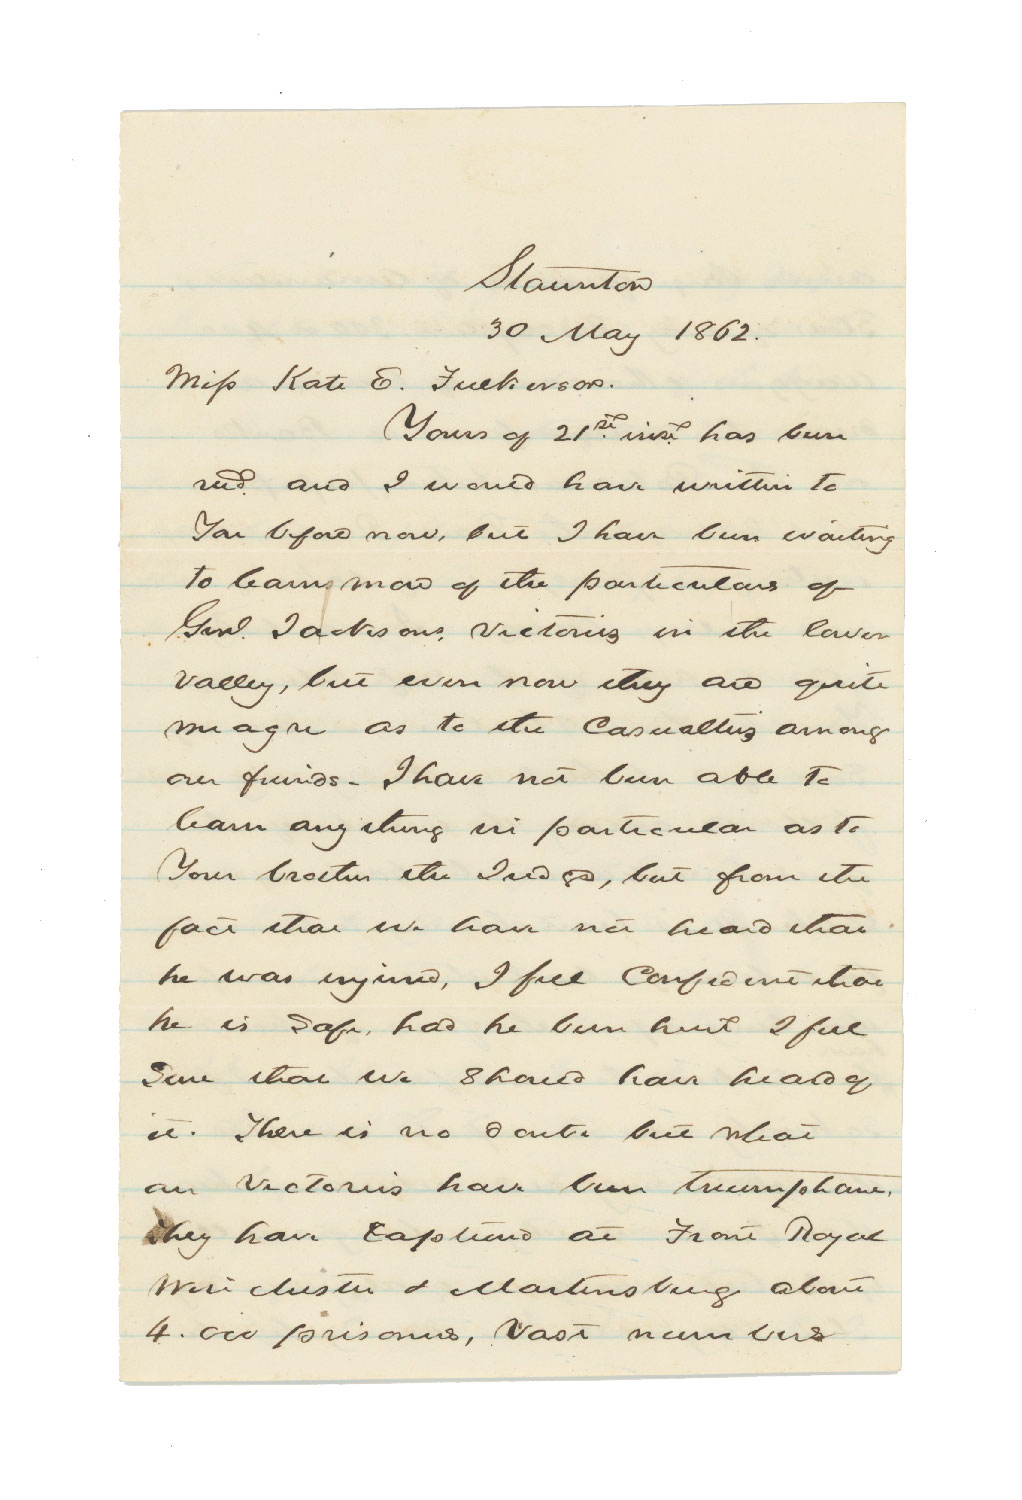 Staunton
30 May 1862.
Miss Kate E. Fulkerson.
Yours of 21st. inst. has been
recd. and I would have written to
You before now, but I have been waiting
to learn more of the particulars of
Genl. Jacksons, victories in the lower
valley, but even now they are quite
meagre as to the Casualties among
our friends - I have not been able to
learn any thing in particular as to
Your brother the Judge, but from the
fact that we have not heard that
he was injured, I feel Confident that
he is Safe, had he been hurt I feel
Sure that we Should have heard of
it. There is no doubt but what
our victories have been triumphant.
They have Captured at Front Royal
Winchester & Martinsburg about
4.000 prisoners, Vast numbers